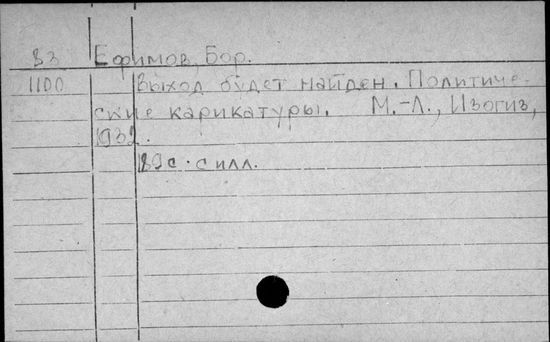 83 Ефимов, Бор.
1100 Выход будет найден. Политиче-
ские карикатуры. М.-Л., Изогиз,
1932.
с илл.